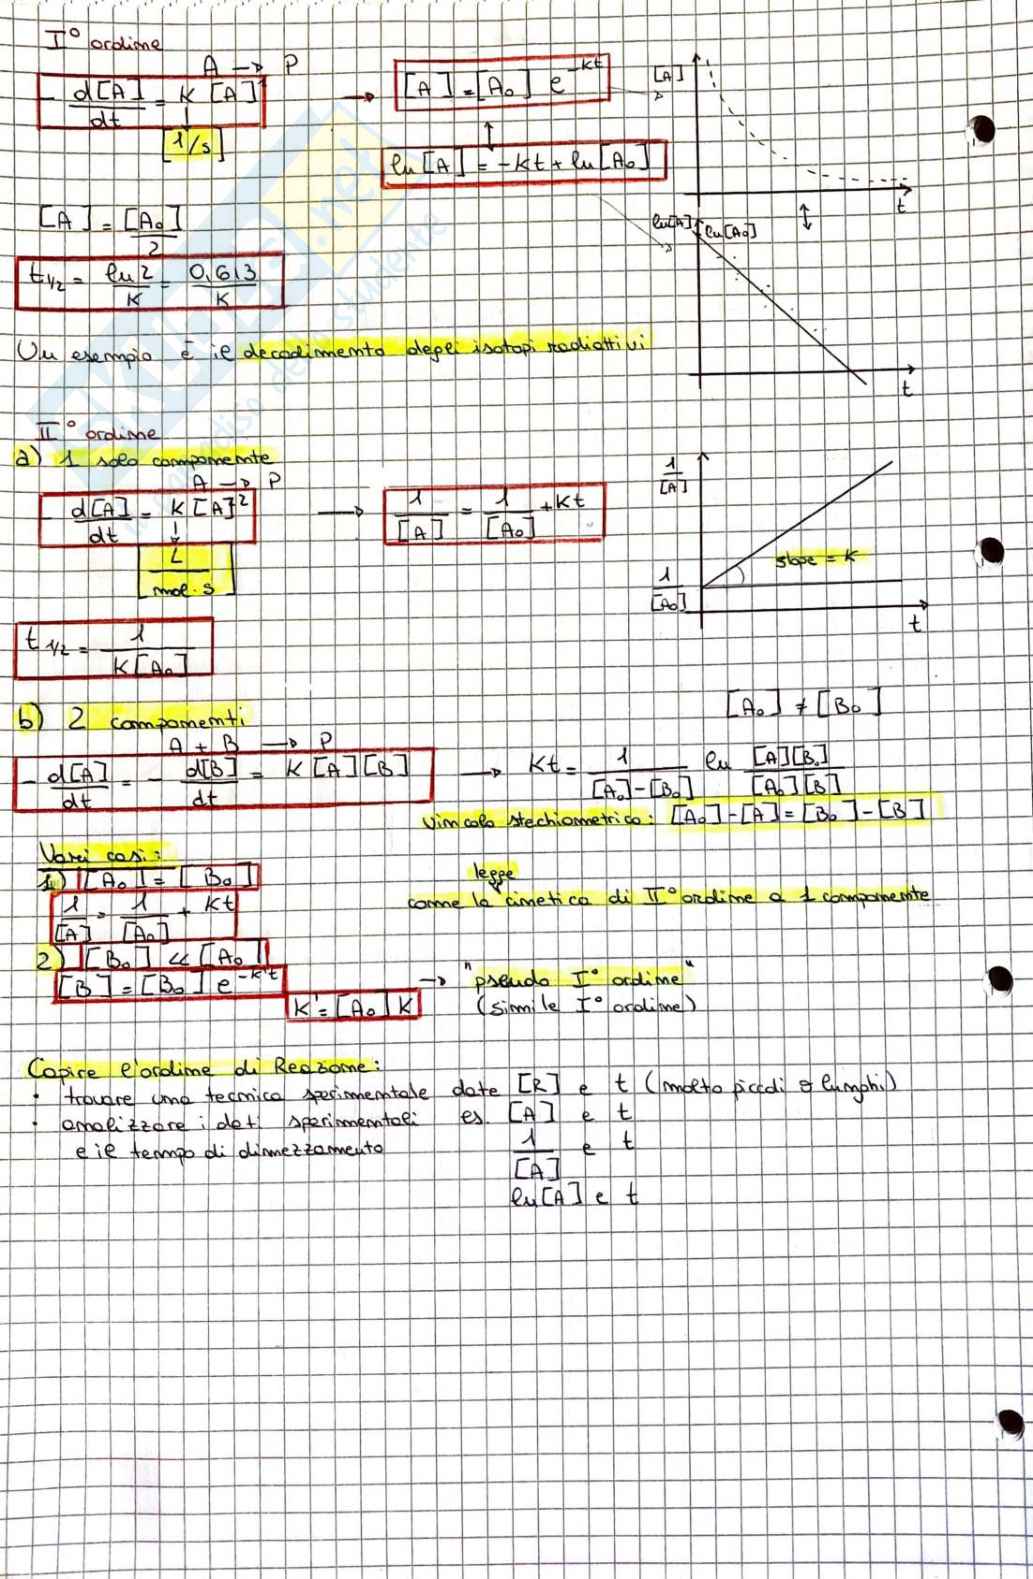 I° ordine
A → P
- d[A]/dt = K [A]¹ → [A] = [A₀] e^-Kt
[1/s]
ln[A] = -Kt + ln[A₀]
[A]
t
[A] = [A₀]/2
t 1/2 = ln2/K = 0,613/K
ln[A]
ln[A₀]
t
Un esempio è il decadimento degli isotopi radiattivi
II° ordine
a) 1 solo componente
A → P
- d[A]/dt = K[A]² → 1/[A] = 1/[A₀] + Kt
L/mol·s
1/[A]
slope = K
1/[A₀]
t
t 1/2 = 1/K[A₀]
b) 2 componenti
[A₀] ≠ [B₀]
A + B → P
- d[A]/dt = - d[B]/dt = K[A][B] → Kt = 1/[A₀]-[B₀] ln [A][B₀]/[A₀][B]
Vincolo stechiometrico: [A₀]-[A] = [B₀]-[B]
Vari casi:
1) [A₀] = [B₀]
legge
1/[A] = 1/[A₀] + Kt
come la cinetica di II° ordine a 1 componente
2) [B₀] << [A₀]
[B] = [B₀] e^-K't → "pseudo I° ordine"
K' = [A₀] K (simile I° ordine)
Capire l'ordine di Reazione:
• trovare una tecnica sperimentale date [R] e t (molto piccoli o lunghi)
• analizzare i dati sperimentali es. [A] e t
e il tempo di dimezzamento 1/[A] e t
ln[A] e t